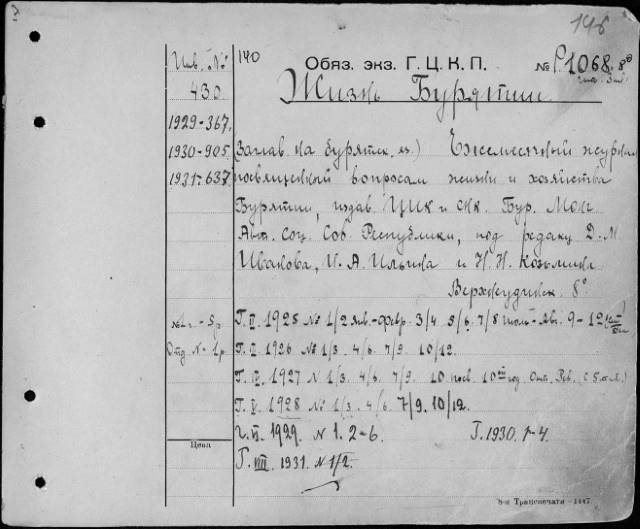 148
Инв. №
140
Обяз. экз. Г. Ц. К. П.
№ Р1068. 8°
430
Жизнь Бурятии
1929-367.
1930-905.
(Заглав. на бурятск. яз.) Ежемесячный журнал
1931-637
посвященный вопросам жизни и хозяйства
Бурятии, издав. ЦИК и СНК. Бур. Мон.
Авт. Соц. Сов. Республики, под редакц. Д. М.
Иванова, И. А. Ильина и Н. Н. Козьмина
Верхнеудинск. 8°
№ 1 г. - 5 р
Г. II. 1925 № 1/2 янв.-февр. 3/4 5/6 7/8 июль-Авг. 9-12
Отд № - 1 р.
Г. III. 1926 № 1/3. 4/6. 7/9. 10/12.
Г. IV. 1927 № 1/3. 4/6. 7/9. 10 посв. 10 год. Окт. Рев.
Г. V. 1928 № 1/3. 4/6. 7/9. 10/12.
Цена
Г. VI. 1929. № 1. 2-6.
Г. 1930. 1-4.
Г. VIII. 1931. № 1/2.
8-я Транспечати—1447.